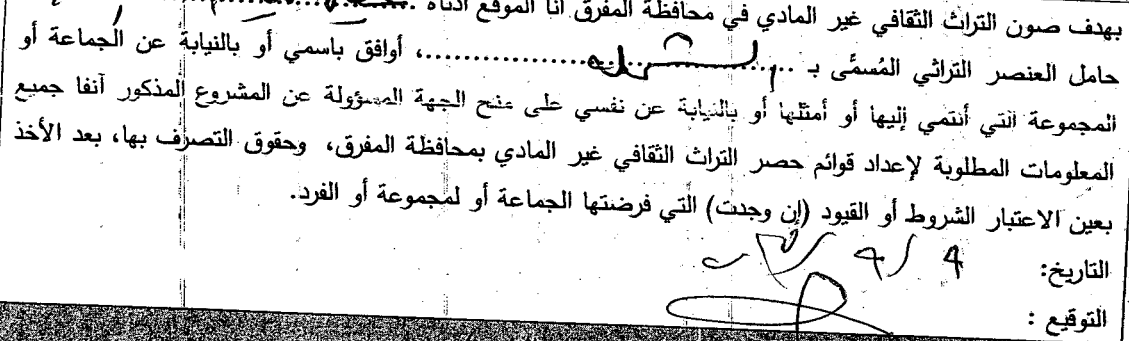 بهدف صون التراث الثقافي غير المادي في محافظة المفرق أنا الموقع أدناه
حامل العنصر التراثي المُسمَّى بـ ........................................، أوافق باسمي أو بالنيابة عن الجماعة أو
المجموعة التي أنتمي إليها أو أمثلها أو بالنيابة عن نفسي على منح الجهة المسؤولة عن المشروع المذكور آنفا جميع
المعلومات المطلوبة لإعداد قوائم حصر التراث الثقافي غير المادي بمحافظة المفرق، وحقوق التصرف بها، بعد الأخذ
بعين الاعتبار الشروط أو القيود (إن وجدت) التي فرضتها الجماعة أو لمجموعة أو الفرد.
التاريخ:
التوقيع :